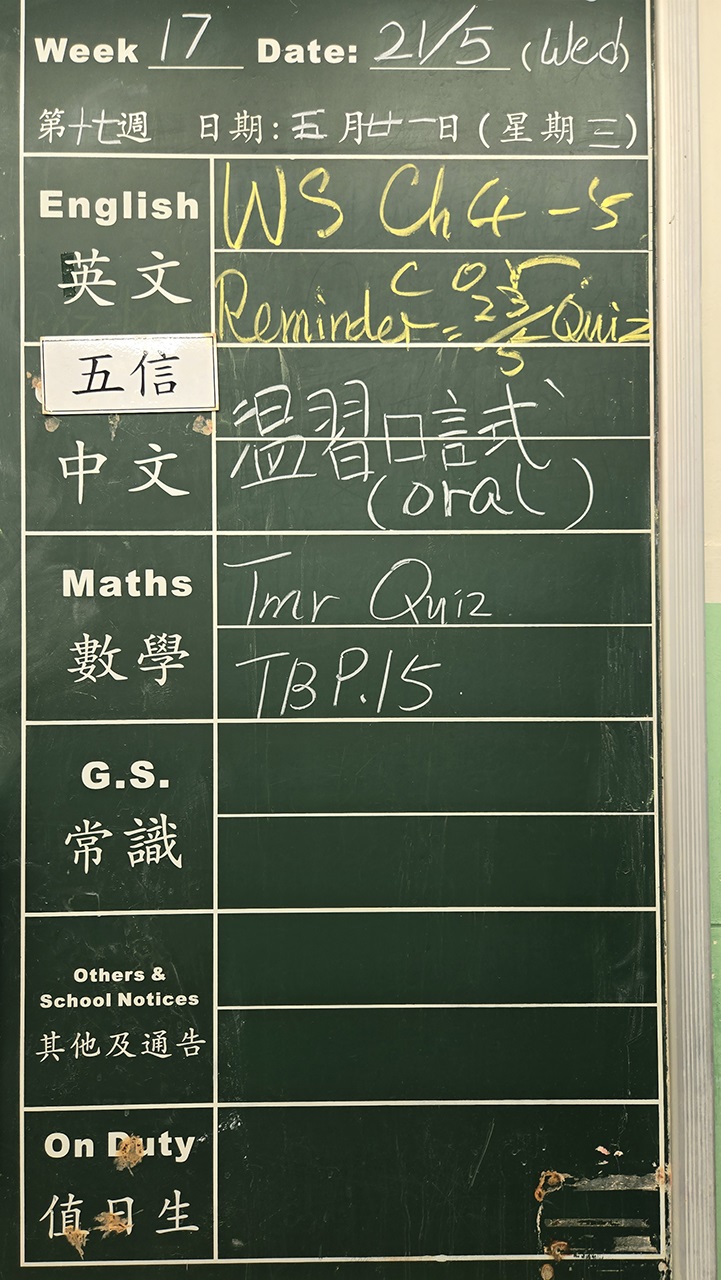 Week 17 Date: 21/5 (Wed)
第十七週 日期:五月廿一日(星期三)
English WS Ch 4-5
英文
Reminder = 23/5 Quiz
五信
中文 温習口試
(oral)
Maths Tmr Quiz
數學 TB P.15
G.S.
常識
Others &
School Notices
其他及通告
On Duty
值日生